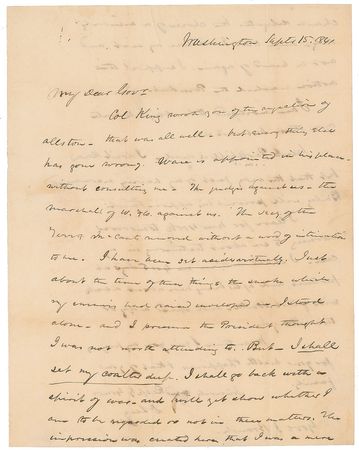 Washington Sept 15. 184
My Dear Gov
Col King wrote you of the rejection of
Allston - that was all well - but every thing else
has gone wrong. Ware is appointed in his place -
without consulting me - The judge is against us - the
marshall of W. Fla. against us. The Secy of the
Terry removed without a word of intimation
to me. I have been set aside virtually. Just
about the time of these things, the smoke which
my enemies had raised enveloped me I stood
alone - and I presume the President thought
I was not worth attending to. But - I shall
set my coulter deep. I shall go back with a
spirit of war - and will yet show whether I
am to be regarded or not in these matters. The
impression was created here that I was a mere